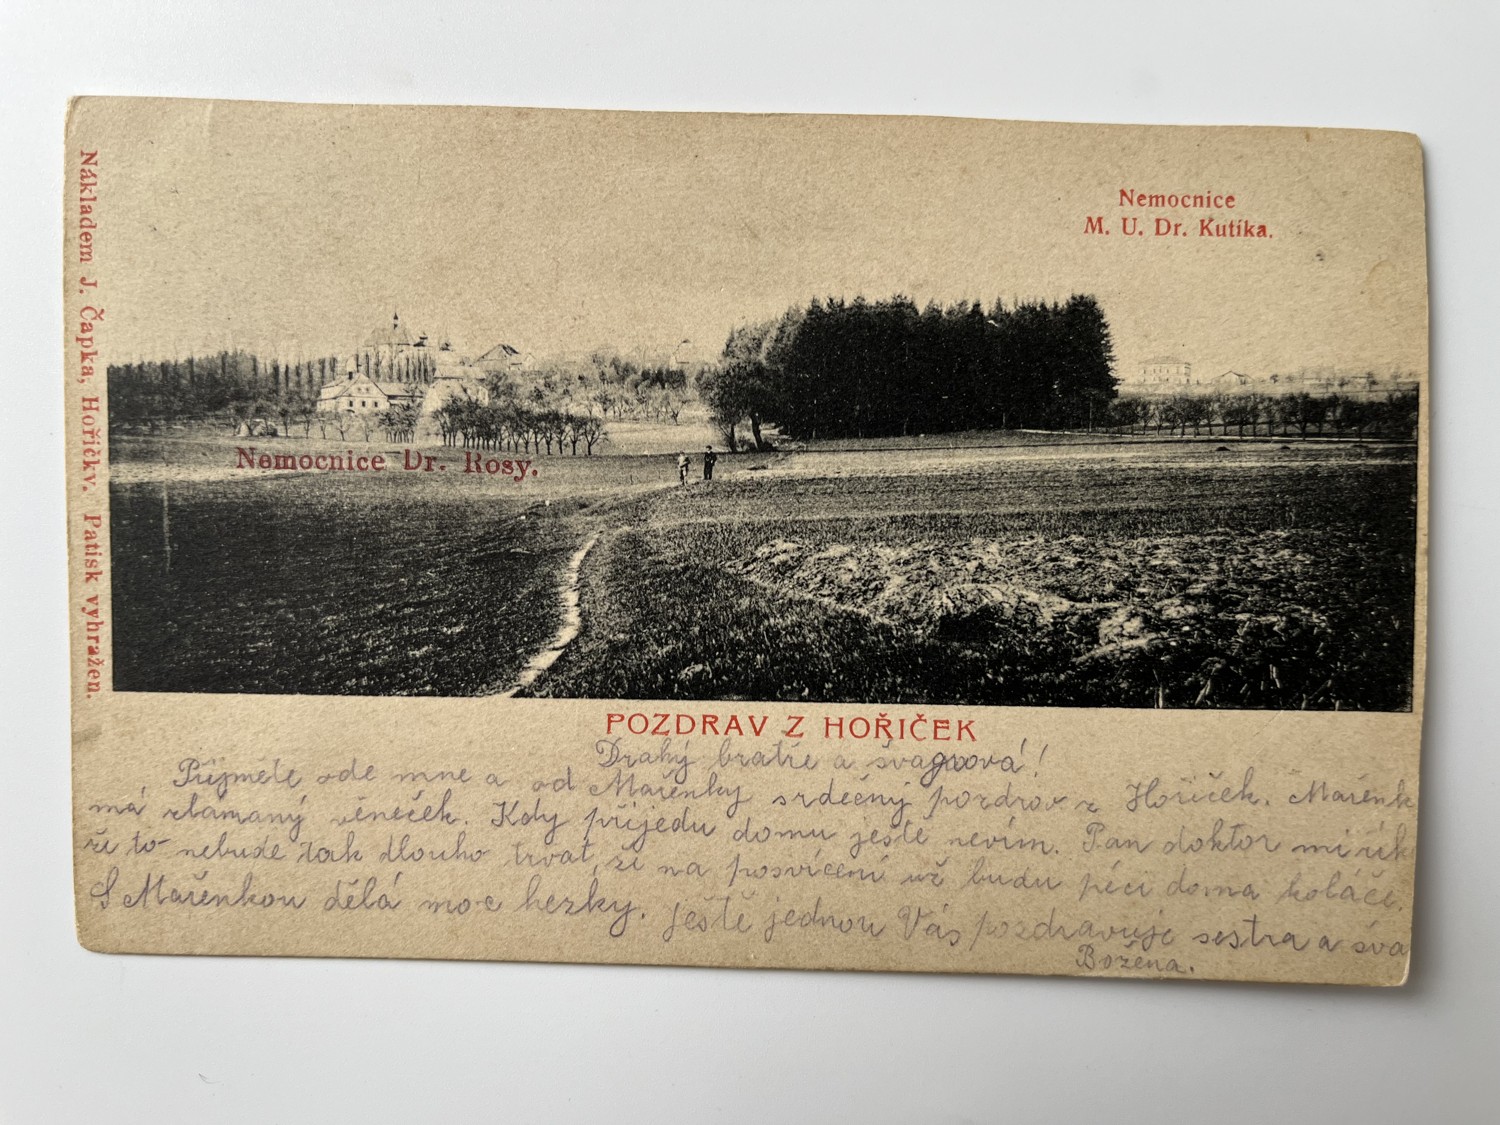 Nákladem J. Čapka, Hořičky. Patisk vyhražen.
Nemocnice
M. U. Dr. Kutíka.
Nemocnice Dr. Rosy.
POZDRAV Z HOŘIČEK
Drahý bratře a švagrová!
Přijměte ode mne a od Mařenky srdečný pozdrav z Hořiček. Mařenk
má zlámaný věneček. Kdy přijedu domu ještě nevím. Pan doktor mi řík
že to nebude tak dlouho trvat, že na posvícení už budu péci doma koláče.
S Mařenkou dělá moc hezky. Ještě jednou Vás pozdravuje sestra a šva
Božena.